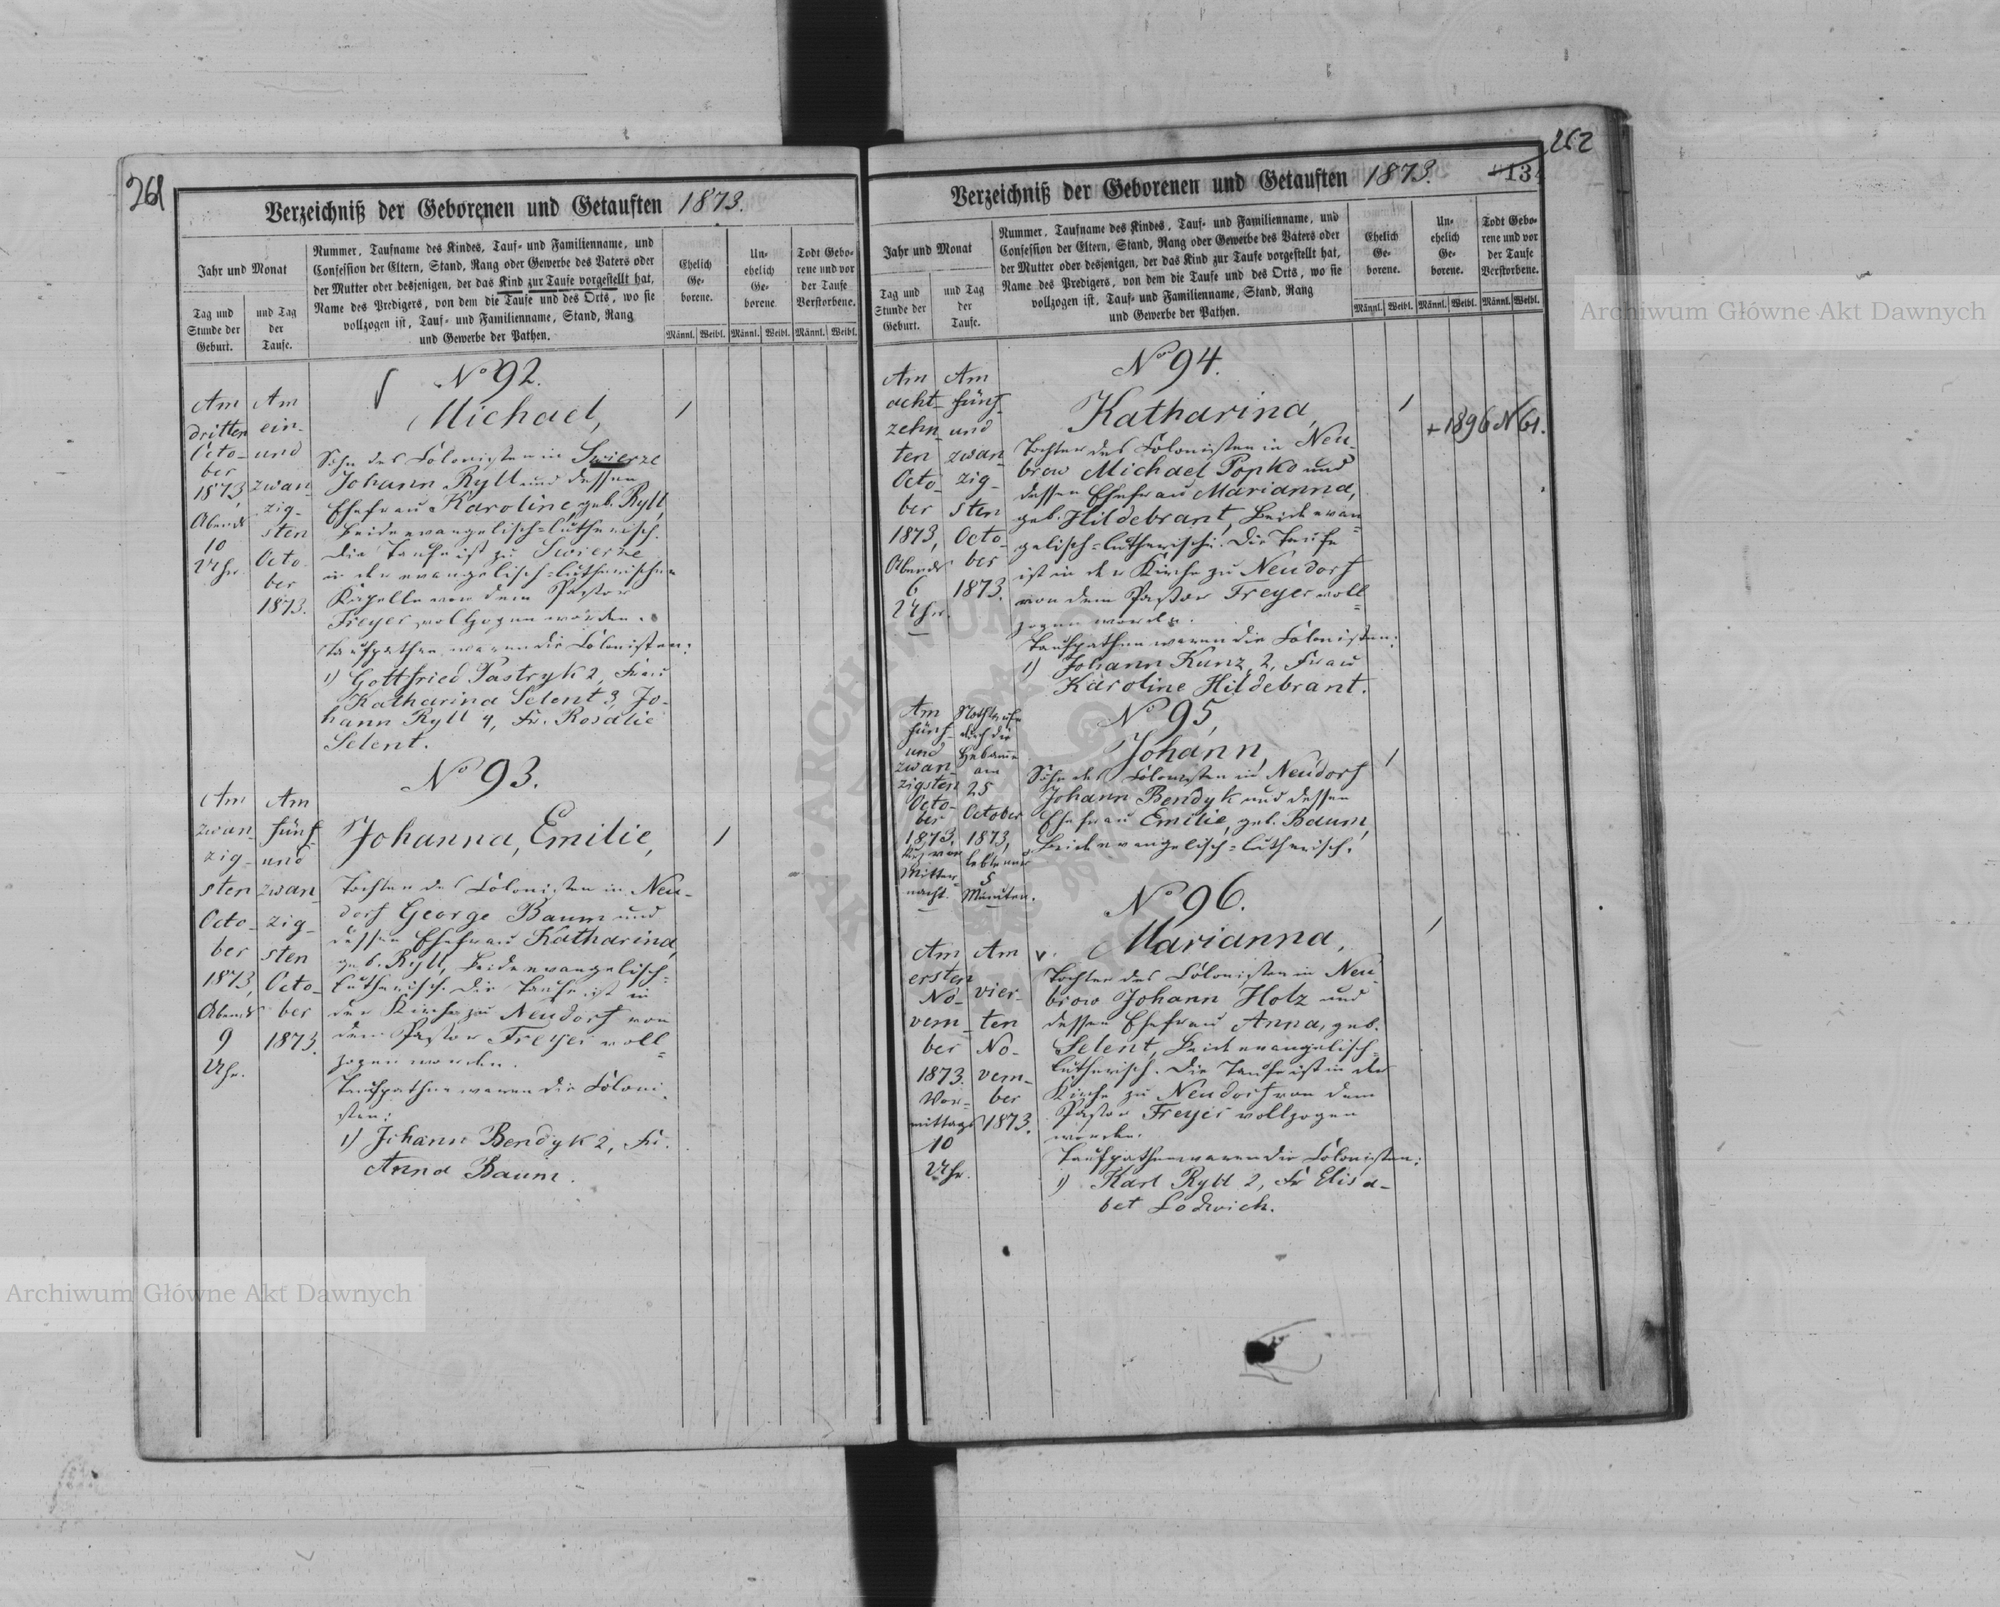 261
Verzeichniß der Geborenen und Getauften 1873.
Jahr und Monat
Tag und
Stunde der
Geburt.
und Tag
der
Taufe.
Nummer, Taufname des Kindes, Tauf- und Familienname, und
Confession der Eltern, Stand, Rang oder Gewerbe des Vaters oder
der Mutter oder desjenigen, der das Kind zur Taufe vorgestellt hat,
Name des Predigers, von dem die Taufe und des Orts, wo sie
vollzogen ist, Tauf- und Familienname, Stand, Rang
und Gewerbe der Pathen.
Ehelich
Ge-
borene.
Un-
ehelich
Ge-
borene
Todt Gebo-
rene und vor
der Taufe
Verstorbene.
Männl. Weibl. Männl. Weibl. Männl. Weibl.
Am
dritten
Octo-
ber
1873,
Abends
10
Uhr.
Am
ein-
und
zwan-
zig-
sten
Octo-
ber
1873.
No 92.
Michael,
Sohn des Colonisten in Swierze
Johann Ryll und dessen
Ehefrau Karoline, geb. Ryll,
beide evangelisch-lutherisch.
Die Taufe ist zu Swierze
in der evangelisch-lutherischen
Kapelle von dem Pastor
Freyer vollzogen worden.
Taufpathen waren die Colonisten:
1) Gottfried Pastryk 2, Frau
Katharina Selent 3, Jo-
hann Ryll 4, Fr. Rosalie
Selent.
1
Am
zwan-
zig-
sten
Octo-
ber
1873,
Abends
9
Uhr.
Am
fünf
und
zwan-
zig-
sten
Octo-
ber
1873.
No 93.
Johanna, Emilie,
Tochter des Colonisten in Neu-
dorf George Baum und
dessen Ehefrau Katharina,
geb. Ryll, beide evangelisch-
lutherisch. Die Taufe ist in
der Kirche zu Neudorf von
dem Pastor Freyer voll-
zogen worden.
Taufpathen waren die Coloni-
sten:
1) Johann Bendyk 2, Fr.
Anna Baum.
1
262
134
Verzeichniß der Geborenen und Getauften 1873.
Jahr und Monat
Tag und
Stunde der
Geburt.
und Tag
der
Taufe.
Nummer, Taufname des Kindes, Tauf- und Familienname, und
Confession der Eltern, Stand, Rang oder Gewerbe des Vaters oder
der Mutter oder desjenigen, der das Kind zur Taufe vorgestellt hat,
Name des Predigers, von dem die Taufe und des Orts, wo sie
vollzogen ist, Tauf- und Familienname, Stand, Rang
und Gewerbe der Pathen.
Ehelich
Ge-
borene.
Un-
ehelich
Ge-
borene.
Todt Gebo-
rene und vor
der Taufe
Verstorbene.
Männl. Weibl. Männl. Weibl. Männl. Weibl.
Am
acht-
zehn-
ten
Octo-
ber
1873,
Abends
6
Uhr.
Am
fünf-
und
zwan-
zig-
sten
Octo-
ber
1873.
No 94.
Katharina,
Tochter des Colonisten in Neu-
brow Michael Popko und
dessen Ehefrau Marianna,
geb. Hildebrant, beide evan-
gelisch-lutherisch. Die Taufe
ist in der Kirche zu Neudorf
von dem Pastor Freyer voll-
zogen worden.
Taufpathen waren die Colonisten:
1) Johann Kunz, 2, Frau
Karoline Hildebrant.
1
+ 1896 N 61.
Am
fünf-
und
zwan-
zigsten
Octo-
ber
1873,
vor
Mitter-
nacht.
Nothtaufe
durch die
Hebamme
am
25
October
1873,
lebte nur
5
Minuten.
No 95,
Johann,
Sohn des Colonisten in Neudorf
Johann Bendyk und dessen
Ehefrau Emilie, geb. Baum,
beide evangelisch-lutherisch.
1
Am
ersten
No-
vem-
ber
1873.
Vor-
mittags
10
Uhr.
Am
vier-
ten
No-
vem-
ber
1873.
No 96.
Marianna,
Tochter des Colonisten in Neu-
brow Johann Holz und
dessen Ehefrau Anna, geb.
Selent, beide evangelisch-
lutherisch. Die Taufe ist in der
Kirche zu Neudorf von dem
Pastor Freyer vollzogen
worden.
Taufpathen waren die Colonisten:
1) Karl Ryll 2, Fr Elisa-
bet Lodwich.
1
Archiwum Główne Akt Dawnych
Archiwum Główne Akt Dawnych